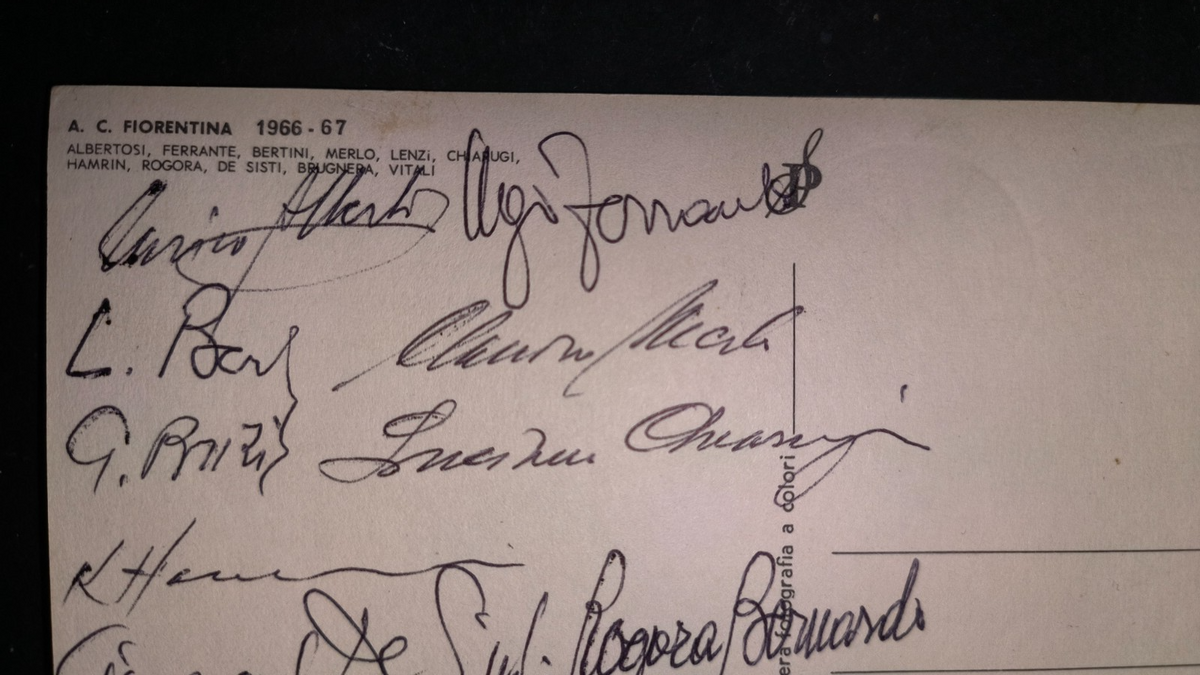 A. C. FIORENTINA 1966-67
ALBERTOSI, FERRANTE, BERTINI, MERLO, LENZi, CHiARUGI,
HAMRIN, ROGORA, DE SISTI, BRUGNERA, VITALI
Enrico Albertosi Ugo Ferrante
L. Claudio Merlo
G. Luciano Chiarugi
K Hamrin
De Sisti. Rogora Bernardo
era fotografia a colori